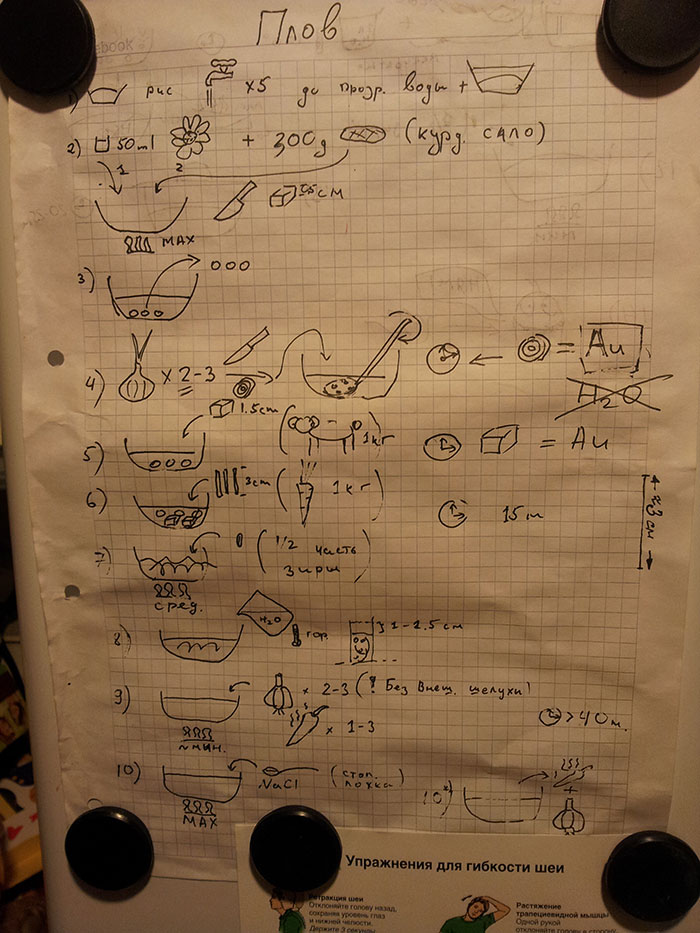 Плов
1) рис x5 до прозр. воды +
2) 50ml + 300g (курд. сало)
1 2
см
MAX
3)
4) x 2-3 = Au
H2O
5) 1.5cm 1кг = Au
6) 3cm ( 1кг ) 15m
7) (1/2 часть
зиры)
сред.
8) H2O гор. 1-1.5 см
9) x 2-3 (! Без внеш. шелухи!
x 1-3 >40м.
~мин.
10) NaCl (стол. ложка) 10*)
MAX +
Упражнения для гибкости шеи
Ретракция шеи
Отклоняйте голову назад,
сохраняя уровень глаз
и нижней челюсти.
Держите 3 секунды
Растяжение
трапециевидной мышцы
Одной рукой
отклоняйте голову в сторону,